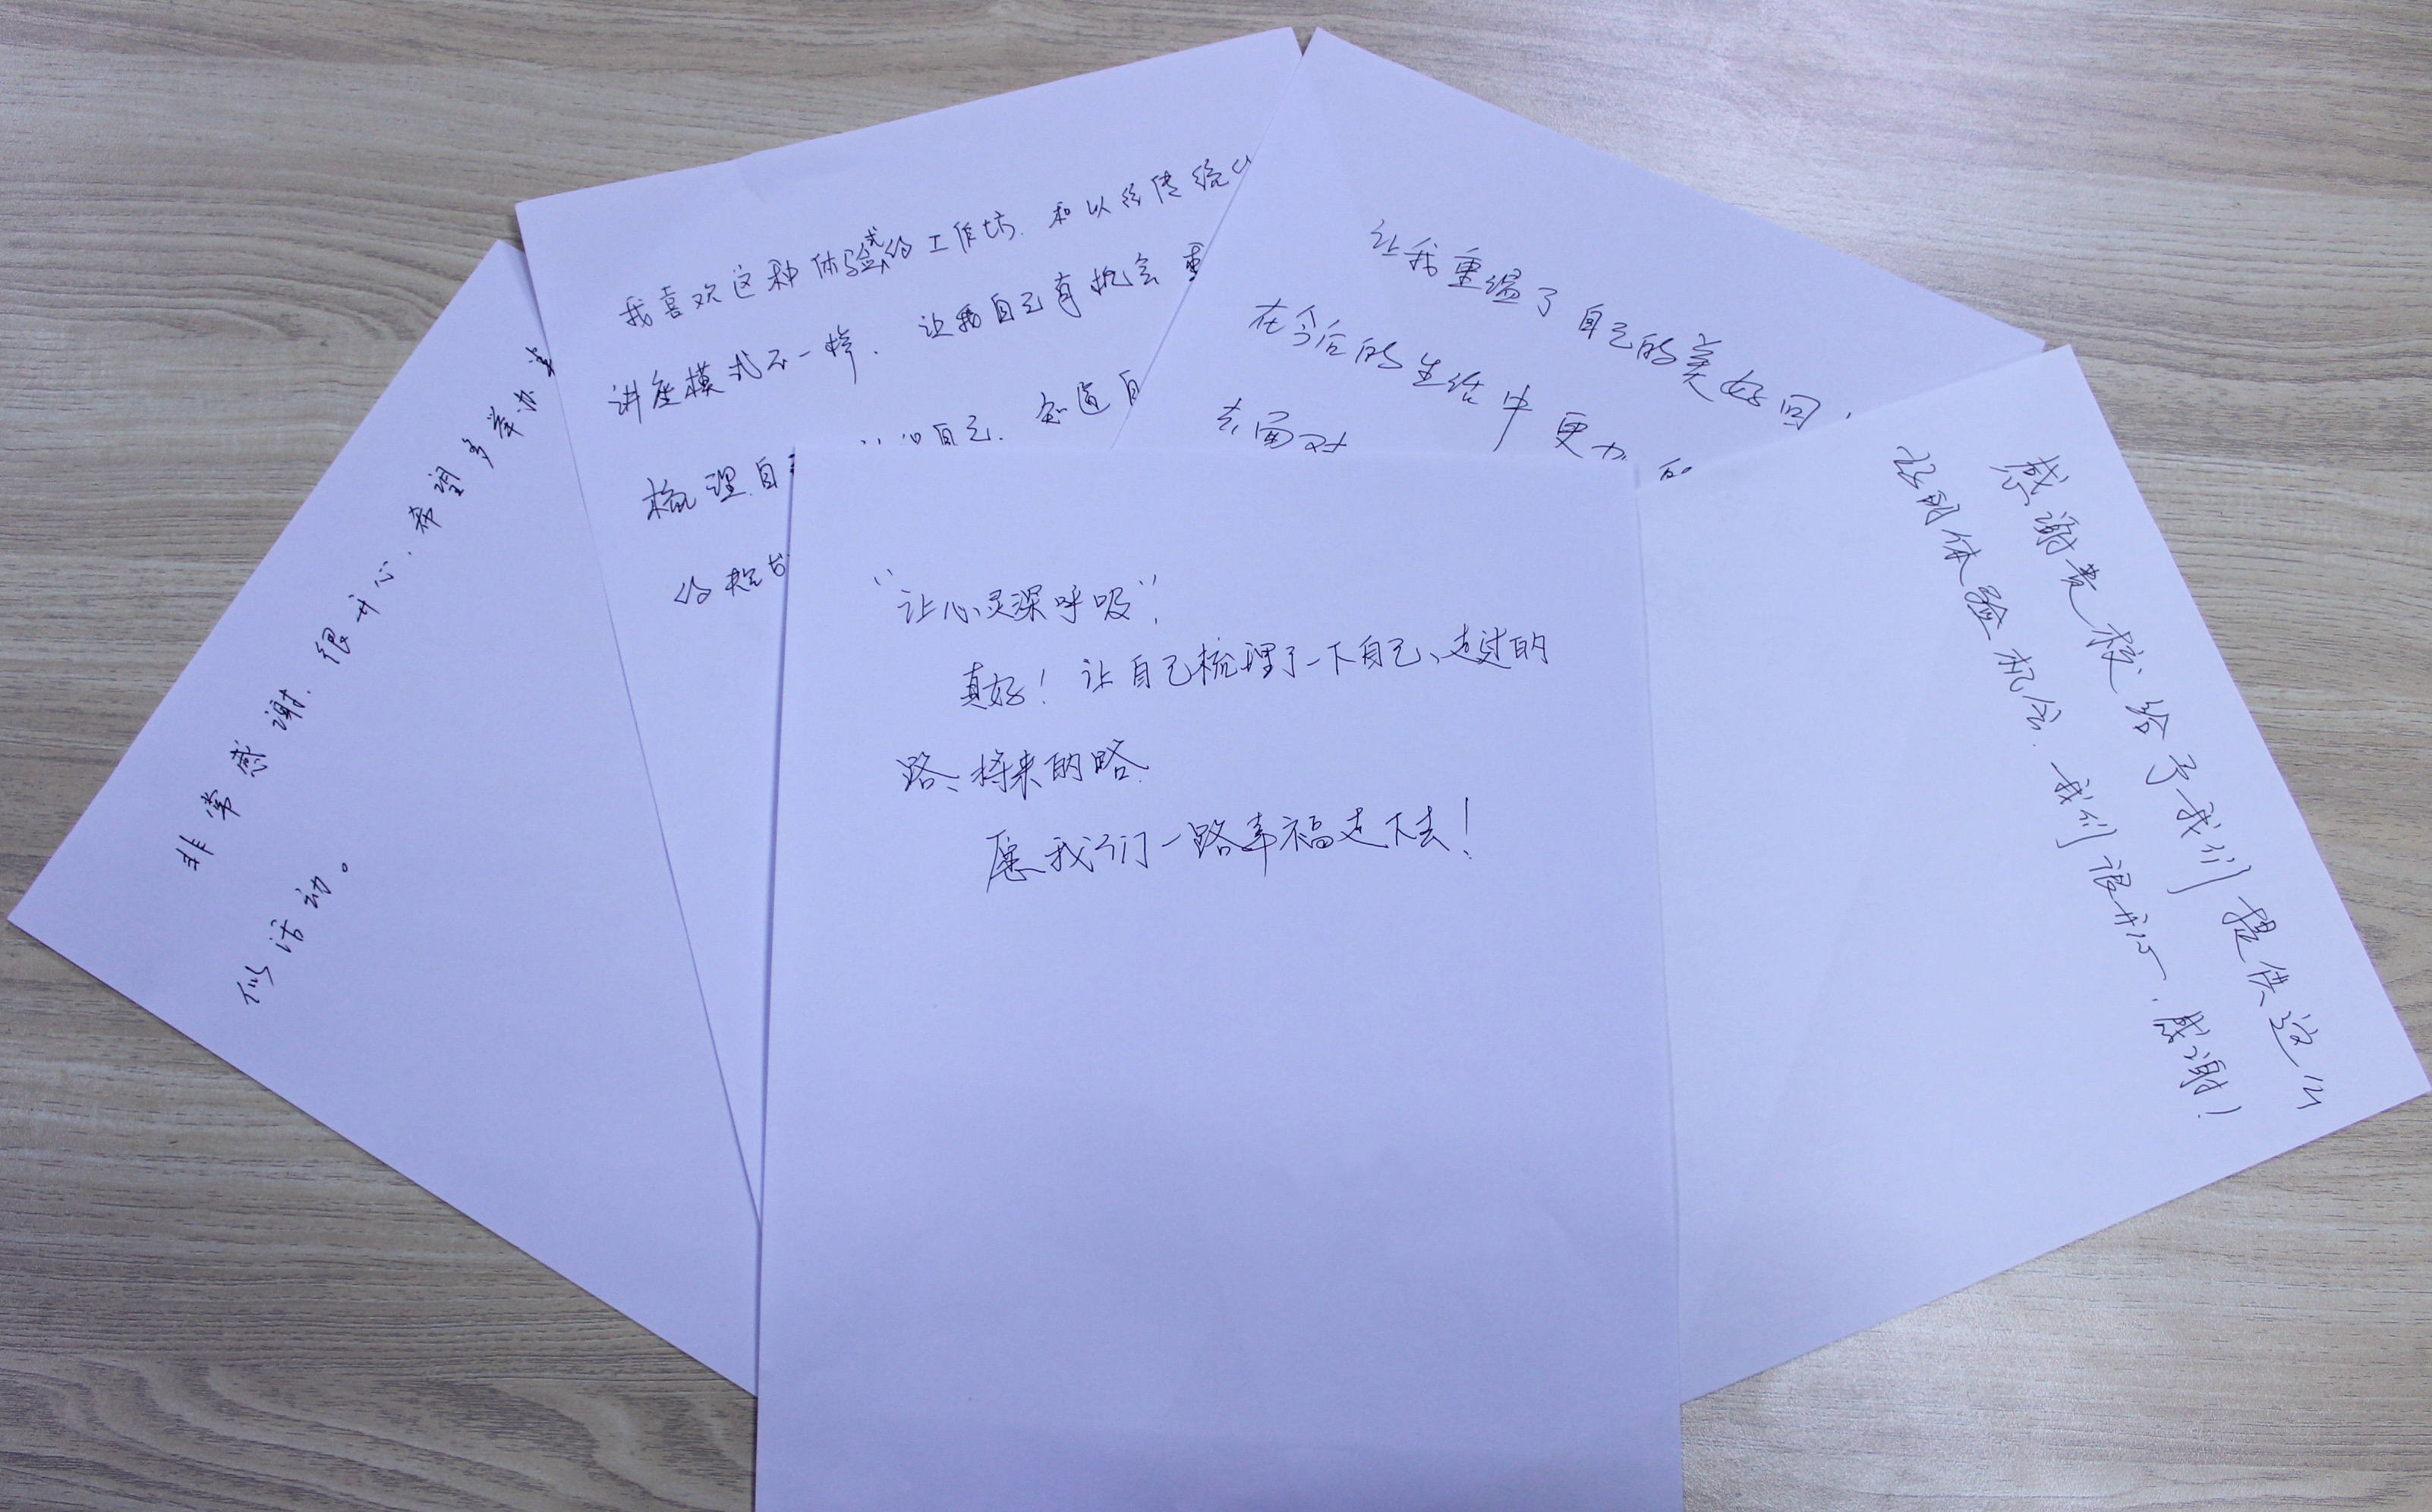 非常感谢.很开心.希望多举办
似活动。
我喜欢这种体验式的工作坊.和以给传统
讲座模式不一样.让我自己有机会重
梳理自
自己.知道自
的
让我重温了自己的美好回
在今后的生活中更加的
去面对
"让心灵深呼吸",
真好!让自己梳理了一下自己、走过的
路、将来的路.
愿我们一路幸福走下去!
感谢贵校给予我们提供这么
好的体验机会.我们很开心.感谢!